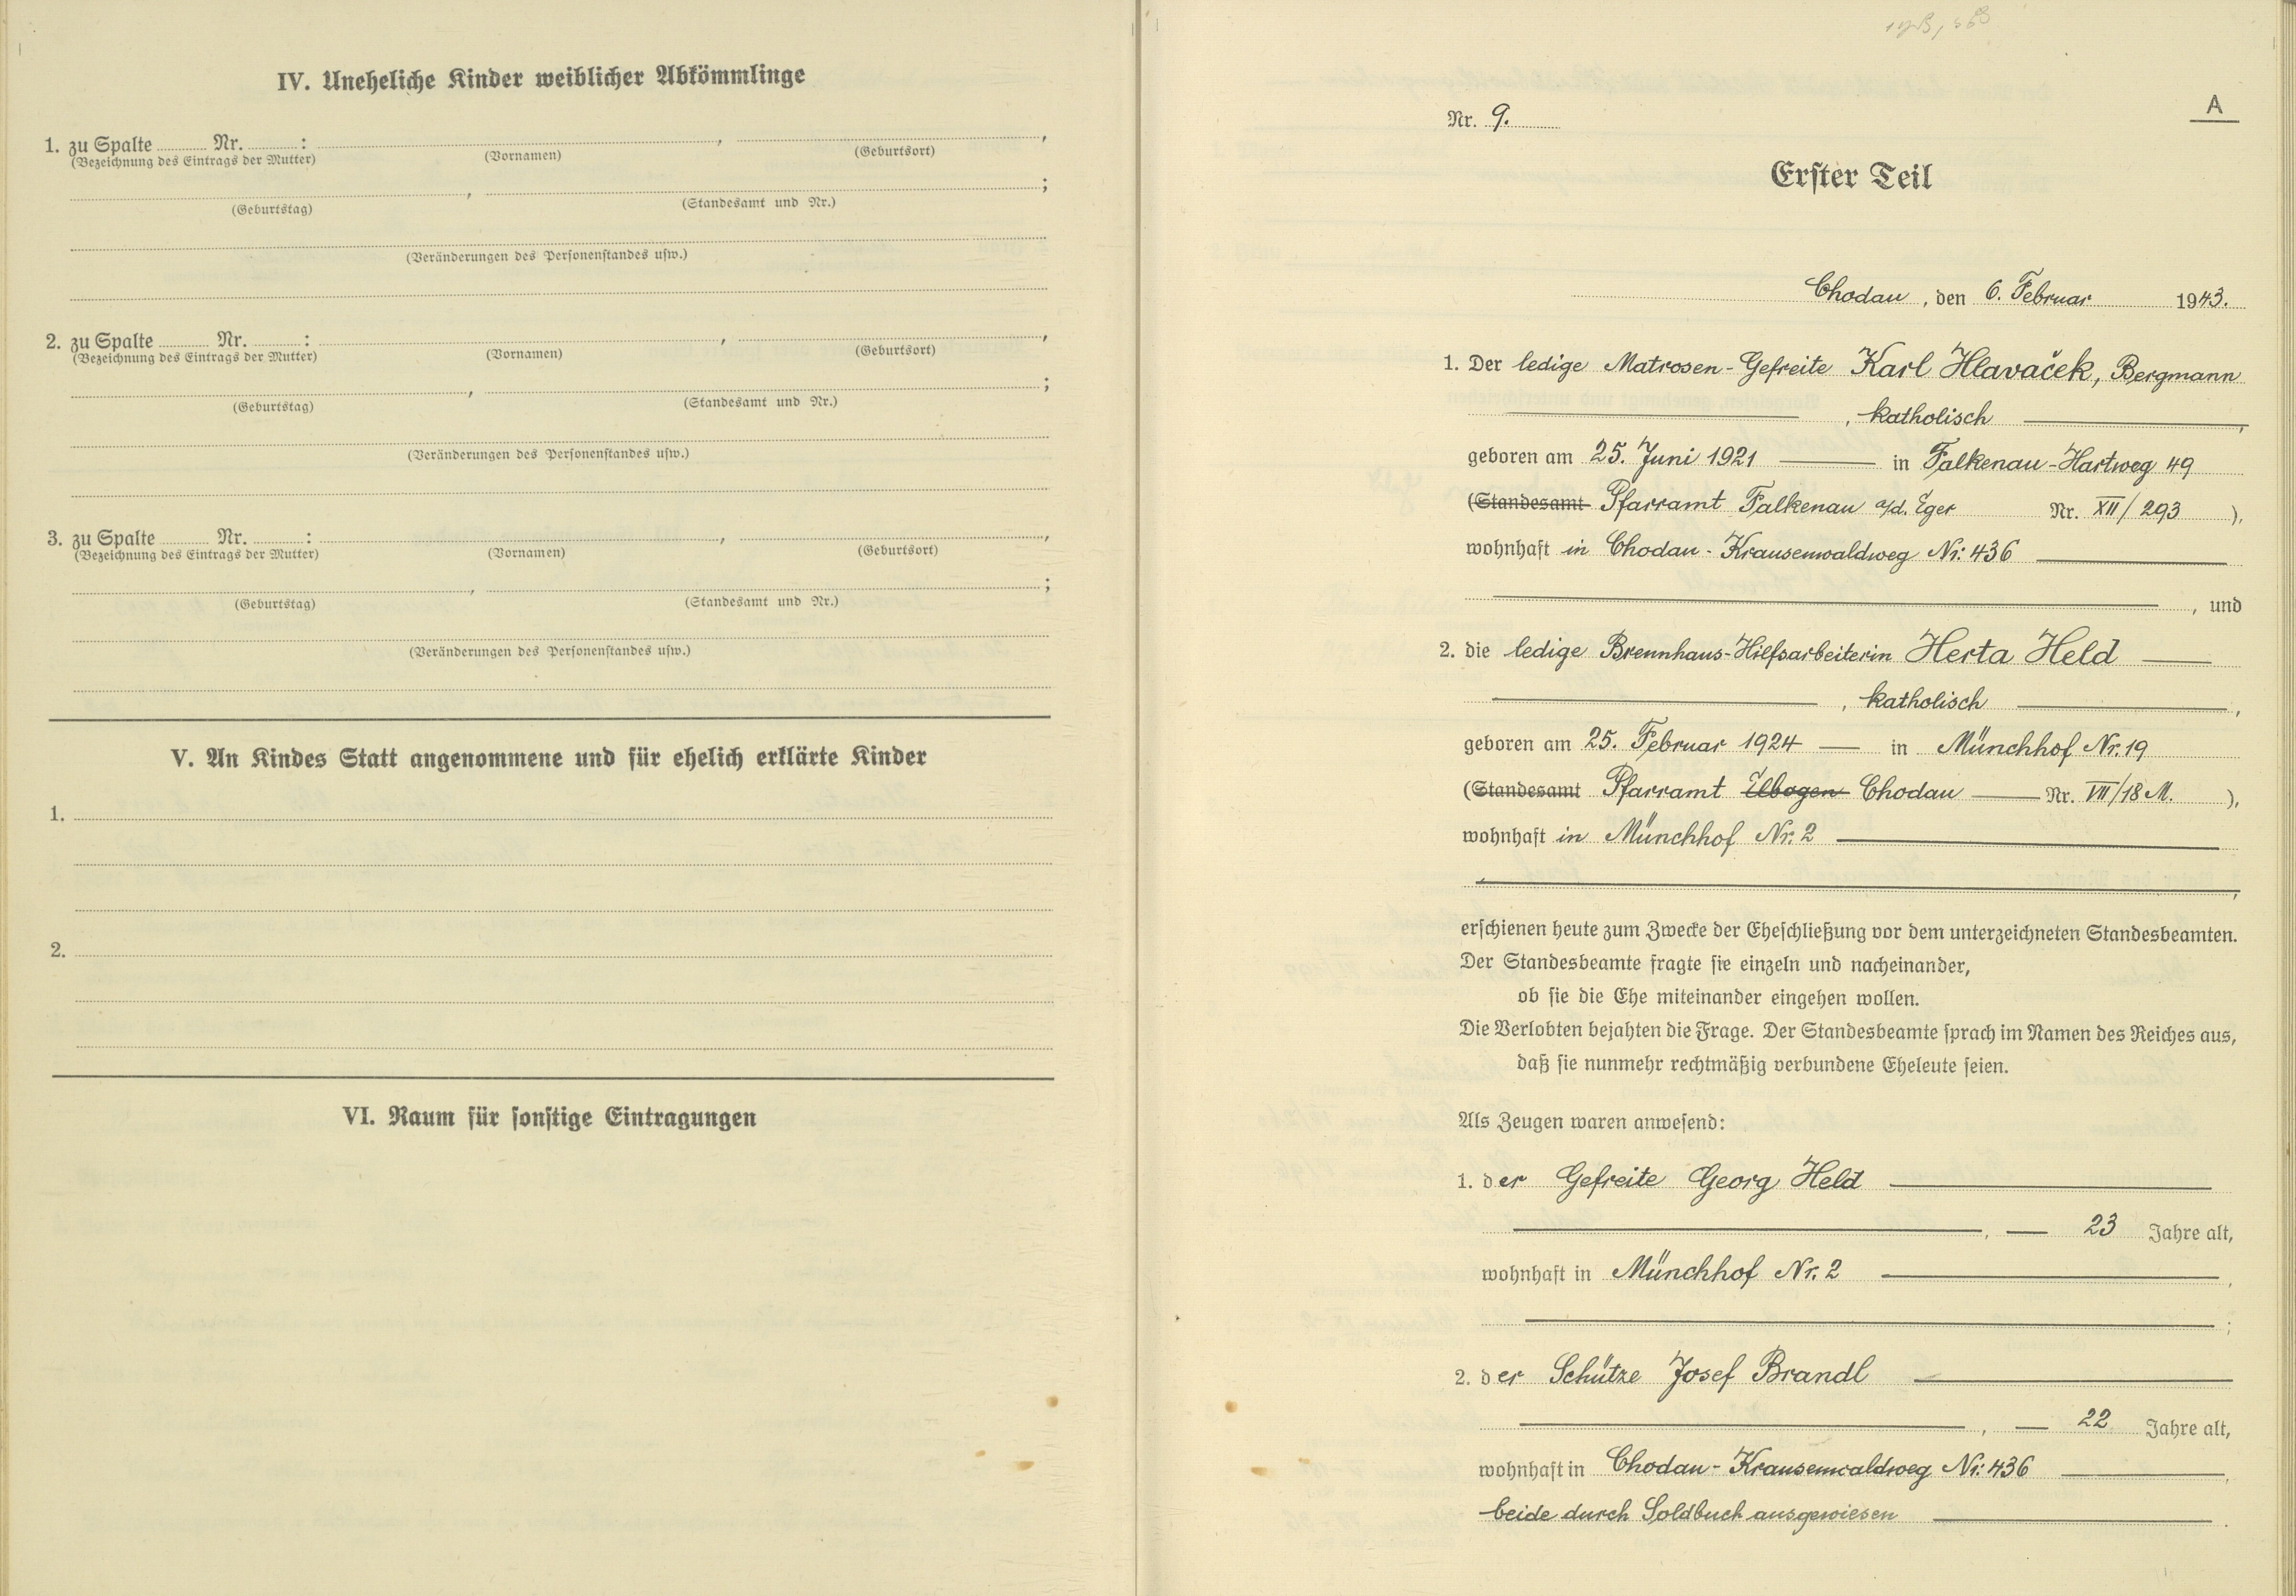 IV. Uneheliche Kinder weiblicher Abkömmlinge
1. zu Spalte Nr. : , ,
(Bezeichnung des Eintrags der Mutter) (Vornamen) (Geburtsort)
, ;
(Geburtstag) (Standesamt und Nr.)
(Veränderungen des Personenstandes usw.)
2. zu Spalte Nr. : , ,
(Bezeichnung des Eintrags der Mutter) (Vornamen) (Geburtsort)
, ;
(Geburtstag) (Standesamt und Nr.)
(Veränderungen des Personenstandes usw.)
3. zu Spalte Nr. : , ,
(Bezeichnung des Eintrags der Mutter) (Vornamen) (Geburtsort)
, ;
(Geburtstag) (Standesamt und Nr.)
(Veränderungen des Personenstandes usw.)
V. An Kindes Statt angenommene und für ehelich erklärte Kinder
1.
2.
VI. Raum für sonstige Eintragungen
A
Nr. 9.
Erster Teil
Chodau, den 6. Februar 1943.
1. Der ledige Matrosen-Gefreite Karl Hlavaček, Bergmann
, katholisch ,
geboren am 25. Juni 1921 in Falkenau-Hartweg 49
(Standesamt Pfarramt Falkenau a/d. Eger Nr. XII/293 ),
wohnhaft in Chodau-Krausenwaldweg Nr: 436
, und
2. die ledige Brennhaus-Hilfsarbeiterin Herta Held
, katholisch ,
geboren am 25. Februar 1924 in Münchhof Nr. 19
(Standesamt Pfarramt Elbogen Chodau Nr. VII/18 M. ),
wohnhaft in Münchhof Nr. 2
,
erschienen heute zum Zwecke der Eheschließung vor dem unterzeichneten Standesbeamten.
Der Standesbeamte fragte sie einzeln und nacheinander,
ob sie die Ehe miteinander eingehen wollen.
Die Verlobten bejahten die Frage. Der Standesbeamte sprach im Namen des Reiches aus,
daß sie nunmehr rechtmäßig verbundene Eheleute seien.
Als Zeugen waren anwesend:
1. der Gefreite Georg Held
, 23 Jahre alt,
wohnhaft in Münchhof Nr. 2 ,
;
2. der Schütze Josef Brandl
, 22 Jahre alt,
wohnhaft in Chodau-Krausenwaldweg Nr: 436 ,
beide durch Soldbuch ausgewiesen .